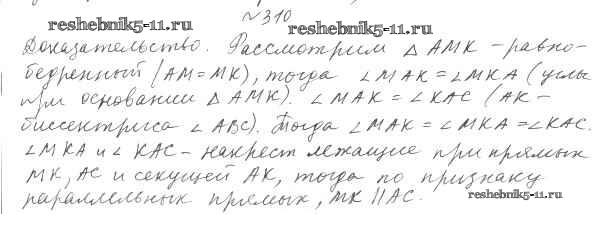 №310
reshebnik5-11.ru reshebnik5-11.ru
Доказательство. Рассмотрим △ AMK - равно-
бедренный (AM = MK), тогда ∠ MAK = ∠ MKA (углы
при основании △ AMK). ∠ MAK = ∠ KAC (AK -
биссектриса ∠ ABC). Тогда ∠ MAK = ∠ MKA = ∠ KAC.
∠ MKA и ∠ KAC - накрест лежащие при прямых
MK, AC и секущей AK, тогда по признаку
параллельных прямых, MK || AC.
reshebnik5-11.ru